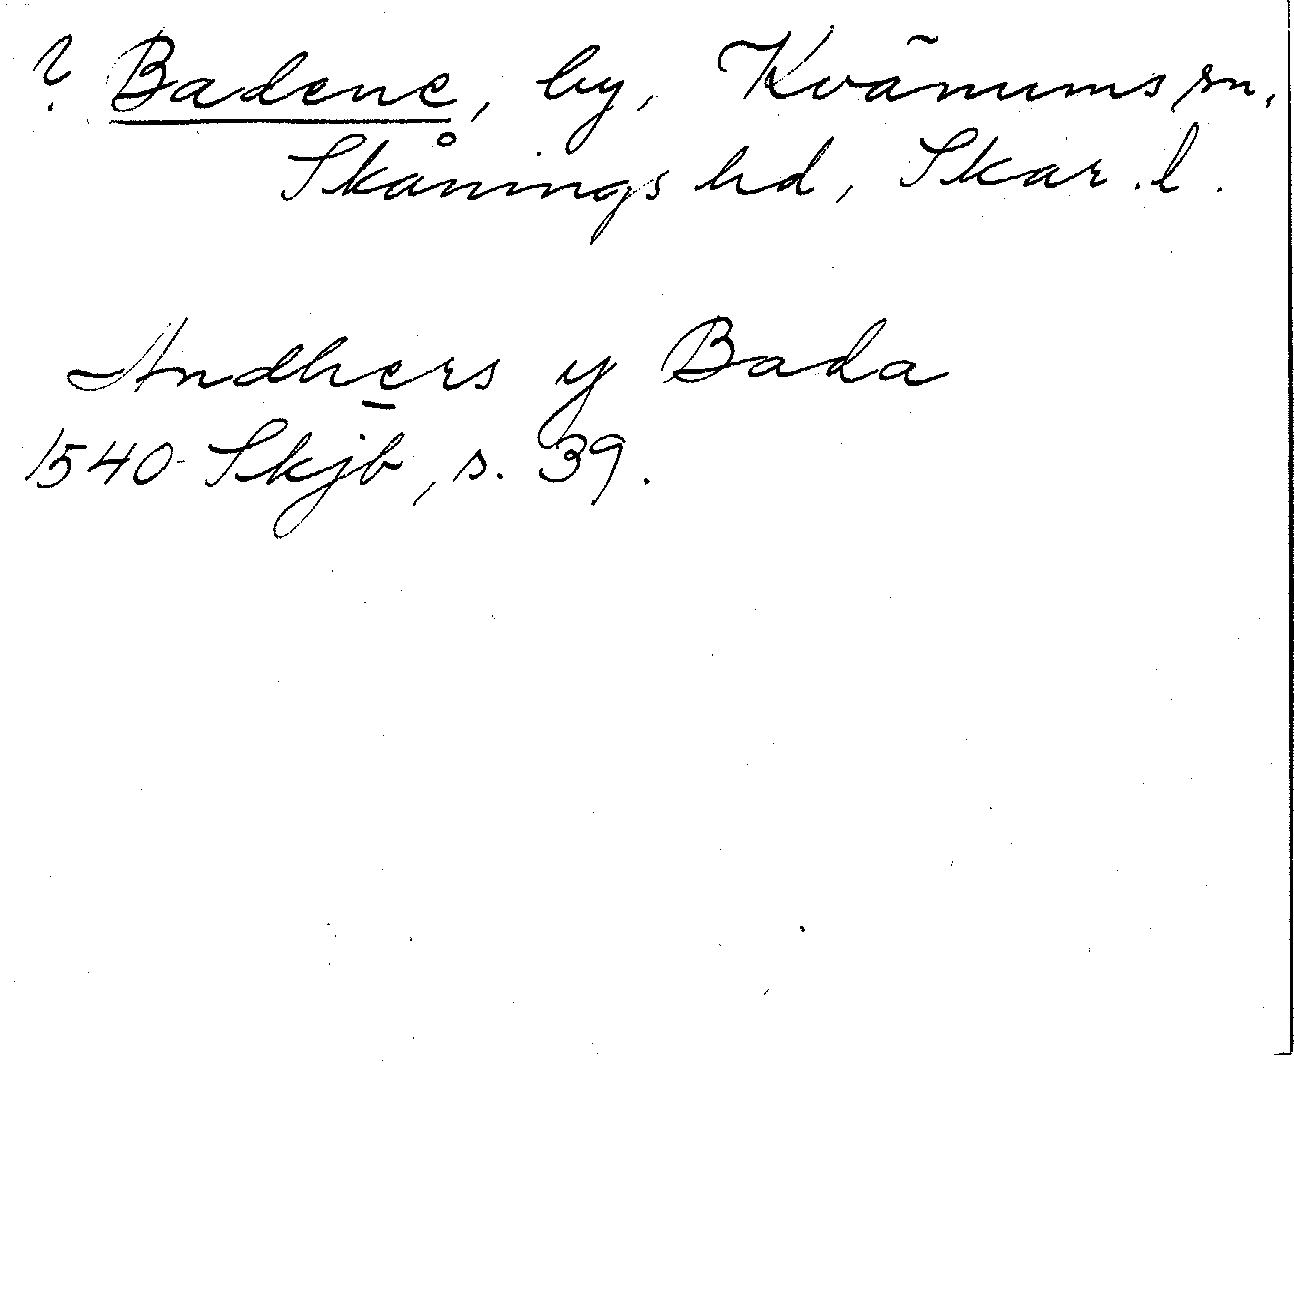 ? Badene, by, Kvänums sn,
Skånings hd, Skar. l.
Andhers y Bada
1540 Skjb, s. 39.